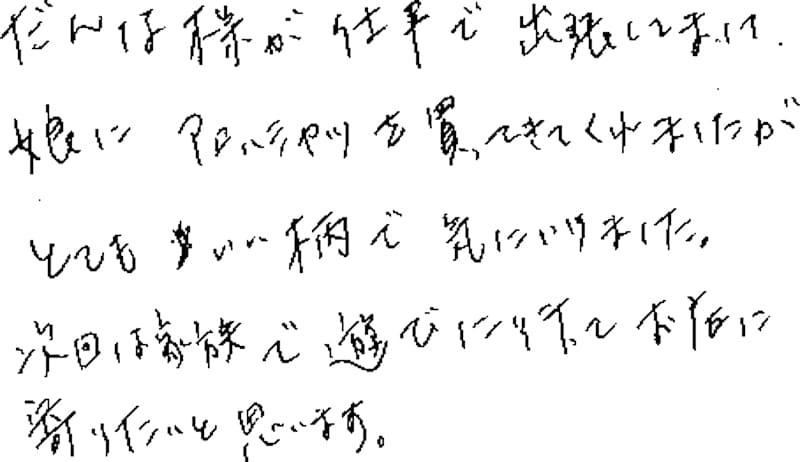 だんな様が仕事で出張しまして.
娘にアロハシャツを買ってきてくれましたが
とてもいい柄で気にいりました。
次回は家族で遊びに行ってお店に
寄りたいと思います。